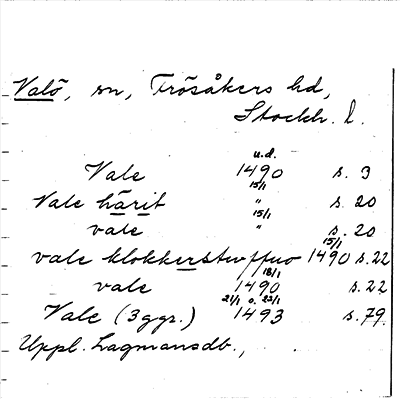 Valö, sn, Frösåkers hd,
Stockh. l.
u.d.
Vale 1490 s. 3
15/1
Vale härit " s. 20
15/1
vale " s. 20
15/1
vale klokkerstwffuo 1490 s. 22
18/1
vale 1490 s. 22
21/1 o. 23/1
Vale (3 ggr.) 1493 s. 79.
Uppl. Lagmansdb.,